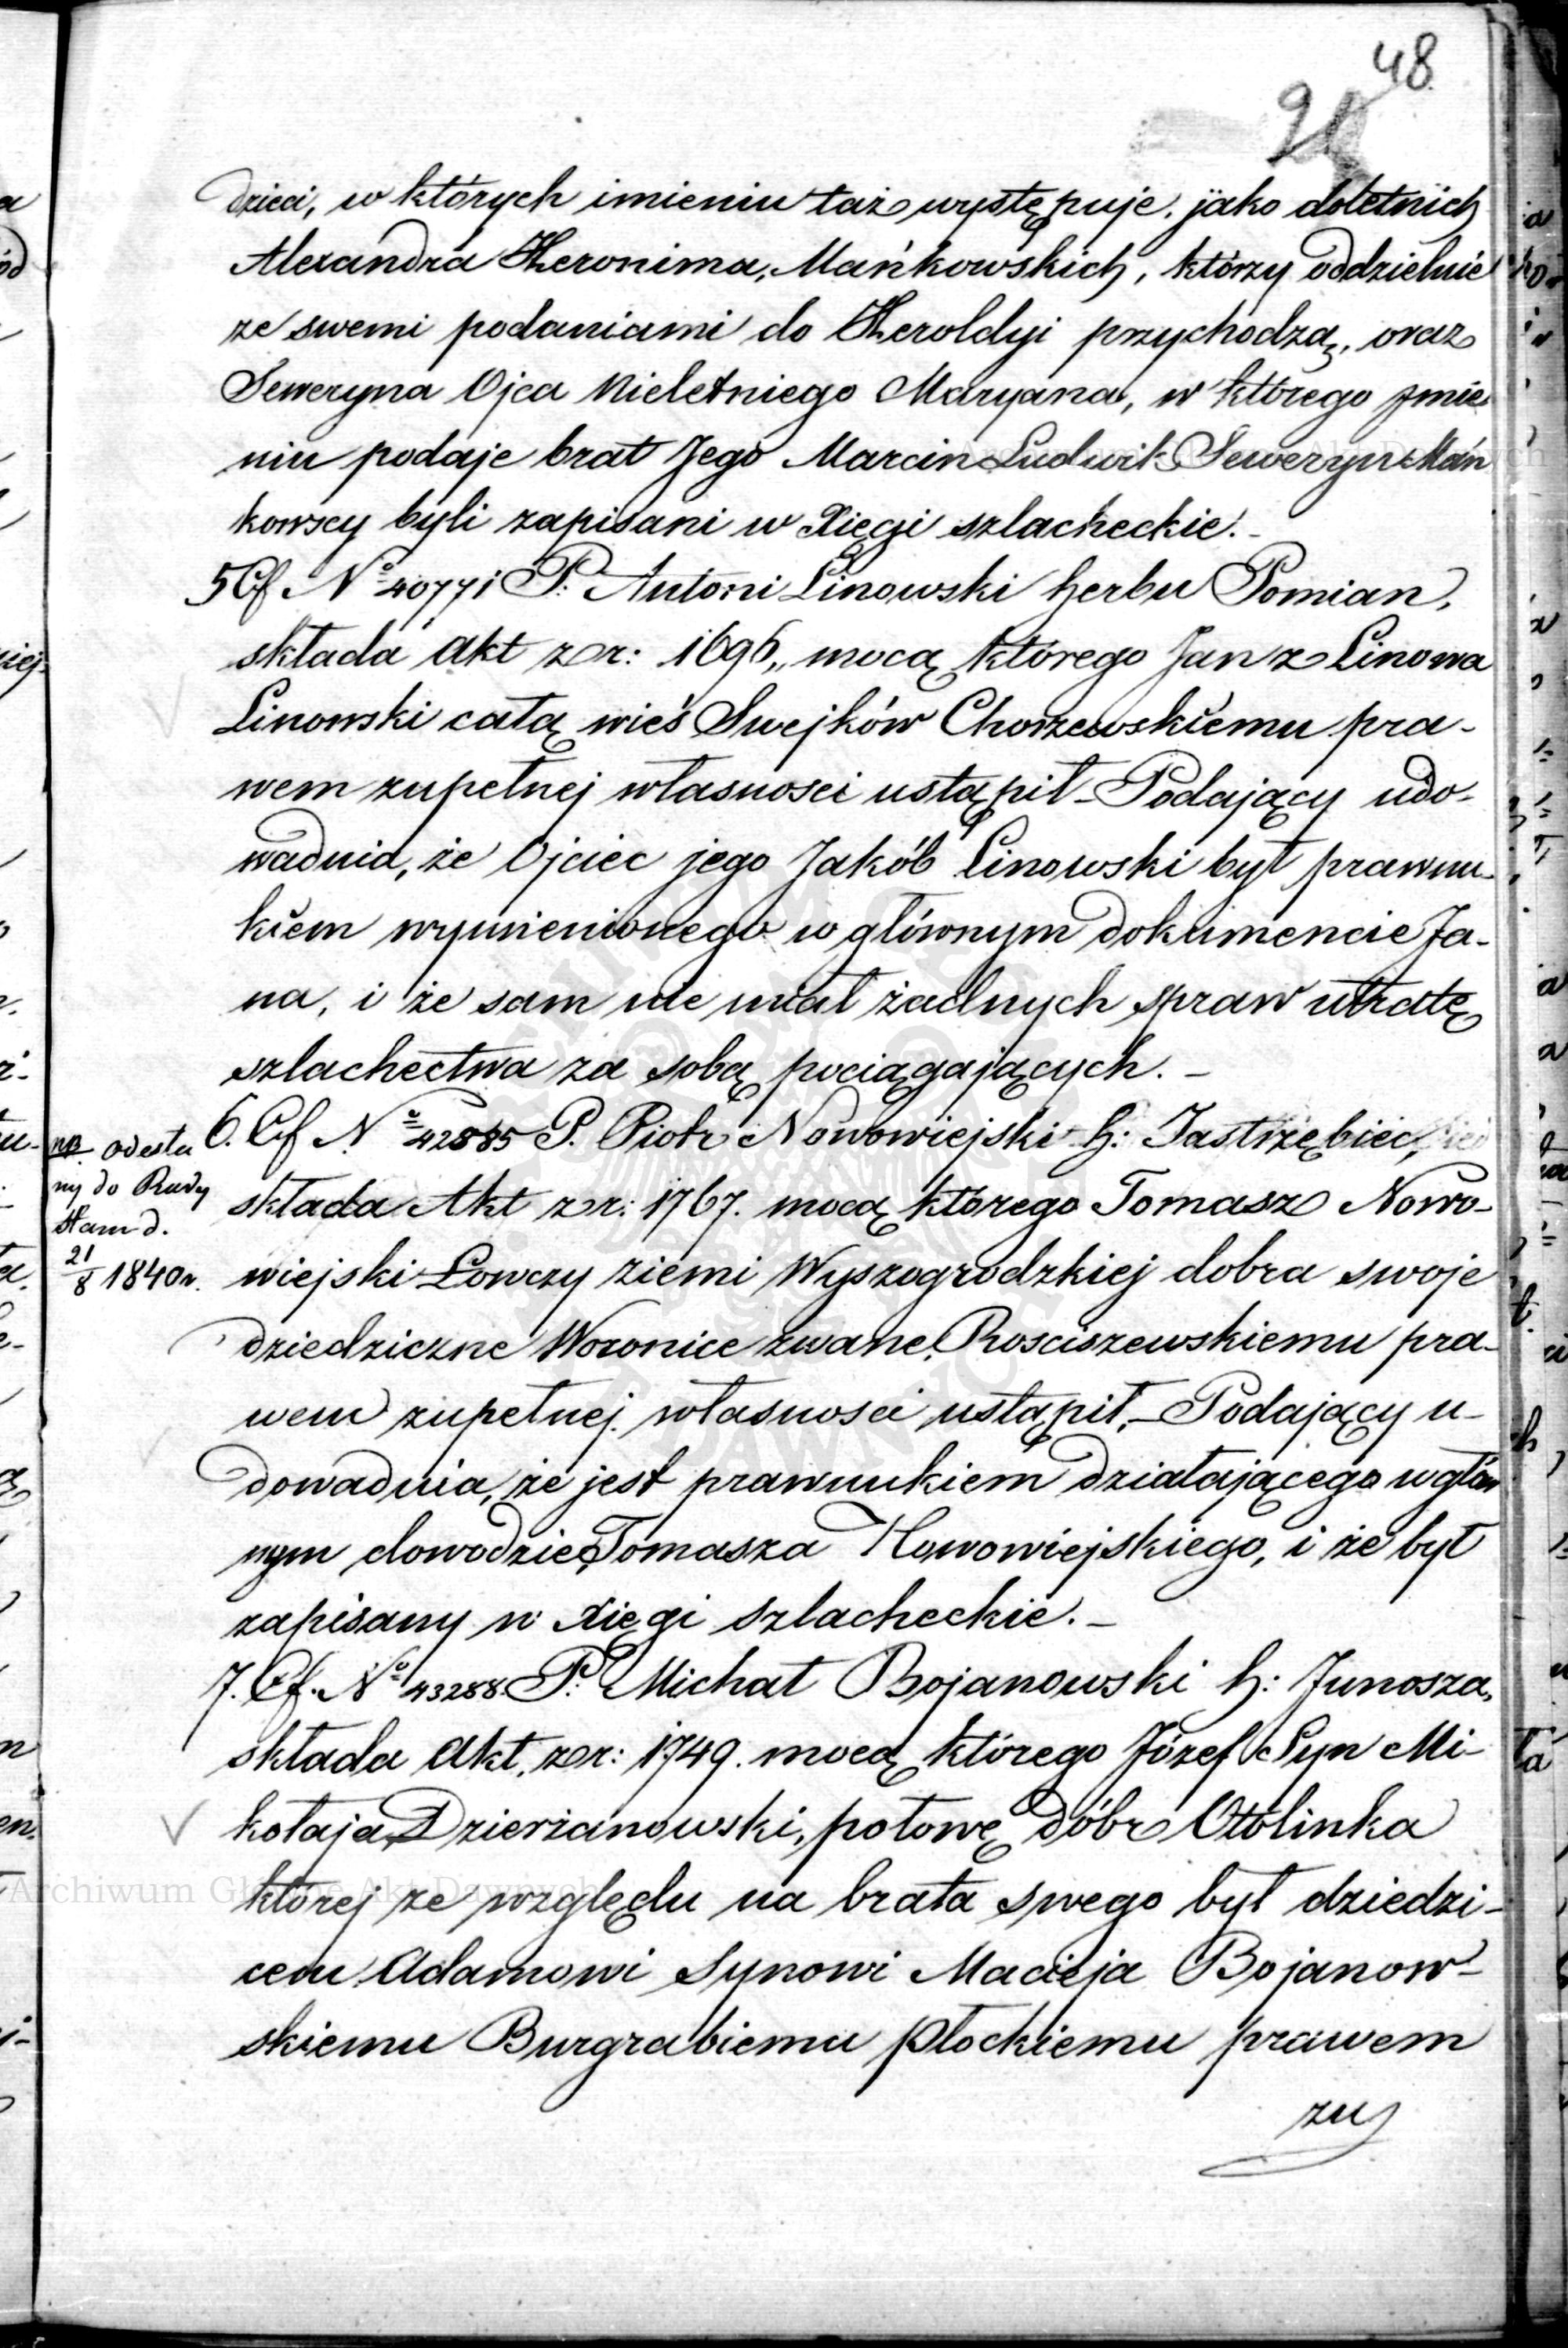 48.
dzieci, w których imieniu taż występuje, jako doletnich
Alexandra Heronima, Mańkowskich, którzy oddzielnie
ze swemi podaniami do Heroldyi przychodzą, oraz
Seweryna Ojca Nieletniego Maryana, w którego Jmie
niu podaje brat Jego Marcin Ludwik Seweryn Mań
kowscy byli zapisani w Xięgi szlacheckie. -
5 Cf Nº 40771 P. Antoni Linowski herbu Pomian,
składa Akt z r: 1696, mocą którego Jan z Linowa
Linowski całą wieś Swejków Chorzewskiemu pra-
wem zupełnej własności ustąpił - Podający udo-
wadnia, że Ojciec jego Jakób Linowski był prawnu-
kiem wymienionego w głównym dokumencie Ja-
na, i że sam nie miał żadnych spraw utratę
szlachectwa za sobą pociągających. -
6. Cf Nº 42885 P. Piotr Nowowiejski h: Jastrzębiec,
składa Akt z r: 1767. mocą którego Tomasz Nowo-
wiejski Łowczy ziemi Wyszogrodzkiej dobra swoje
dziedziczne Woronice zwane, Rosciszewskiemu pra-
wem zupełnej własności ustąpił, - Podający u-
dowadnia, że jest prawnukiem działającego w głów
nym dowodzie Tomasza Nowowiejskiego, i że był
zapisany w Xięgi szlacheckie. -
odesła
ny do Rady
Stanu d.
21/8 1840 r.
7. Cf. Nº 43288 P. Michał Bojanowski h: Junosza,
składa Akt, z r: 1749. mocą którego Józef Syn Mi-
kołaja Dzierżanowski, połowę dóbr Otolinka
której ze względu na brata swego był dziedzi-
cem Adamowi Synowi Macieja Bojanow-
skiemu Burgrabiemu Płockiemu prawem
zu
Archiwum Główne Akt Dawnych